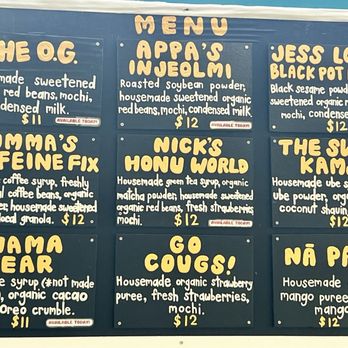 MENU
HE O.G.
made sweetened
red beans, mochi,
densed milk.
$11
AVAILABLE TODAY!
APPA'S
INJEOLMI
Roasted soybean powder,
housemade sweetened organic
red beans, mochi, condensed milk.
$12
AVAILABLE TODAY!
JESS LO
BLACK POT
Black sesame powder
sweetened organic red
mochi, condens
$12
MMA'S
FEINE FIX
coffee syrup, freshly
coffee beans, organic
housemade sweetened
local granola. $12
NICK'S
HONU WORLD
Housemade green tea syrup, organic
matcha powder, housemade sweetened
organic red beans, fresh strawberries,
mochi. $12
AVAILABLE TODAY!
THE SW
KAMA
Housemade ube s
ube powder, organ
coconut shavin
$12
AMA
EAR
e syrup (*not made
), organic cacao
Oreo crumble.
$11
AVAILABLE TODAY!
GO
COUGS!
Housemade organic strawberry
puree, fresh strawberries,
mochi.
$12
NĀ PA
Housemade
mango puree
mango
$12